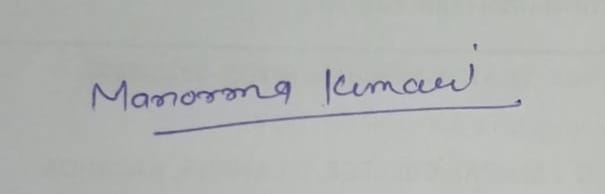 Manorma Kumari